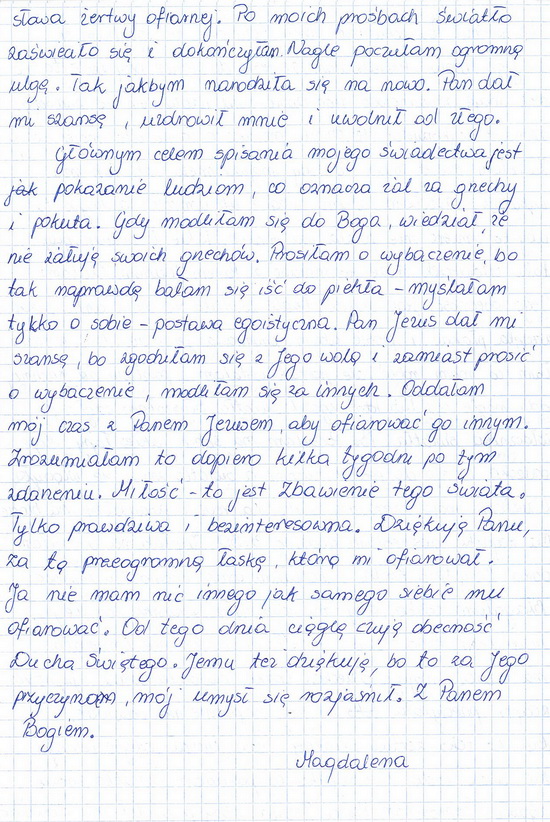 stawa żertwy ofiarnej. Po moich prośbach światło
zaświeało się i dokończyłam. Nagle poczułam ogromną
ulgę. Tak jakbym narodziła się na nowo. Pan dał
mi szansę, uzdrowił mnie i uwolnił od złego.
Głównym celem spisania mojego świadectwa jest
jak pokazanie ludziom, co oznacza żal za grzechy
i pokuta. Gdy modliłam się do Boga, wiedział, że
nie żałuję swoich grzechów. Prosiłam o wybaczenie, bo
tak naprawdę bałam się iść do piekła - myślałam
tylko o sobie - postawa egoistyczna. Pan Jezus dał mi
szansę, bo zgodziłam się z Jego wolą i zamiast prosić
o wybaczenie, modliłam się za innych. Oddałam
mój czas z Panem Jezusem, aby ofiarować go innym.
Zrozumiałam to dopiero kilka tygodni po tym
zdarzeniu. Miłość - to jest Zbawienie tego świata.
Tylko prawdziwa i bezinteresowna. Dziękuję Panu,
za tą przeogromną łaskę, którą mi ofiarował.
Ja nie mam nic innego jak samego siebie mu
ofiarować. Od tego dnia ciągle czuję obecność
Ducha Świętego. Jemu też dziękuję, bo to za Jego
przyczyną, mój umysł się rozjaśnił. Z Panem
Bogiem.
Magdalena